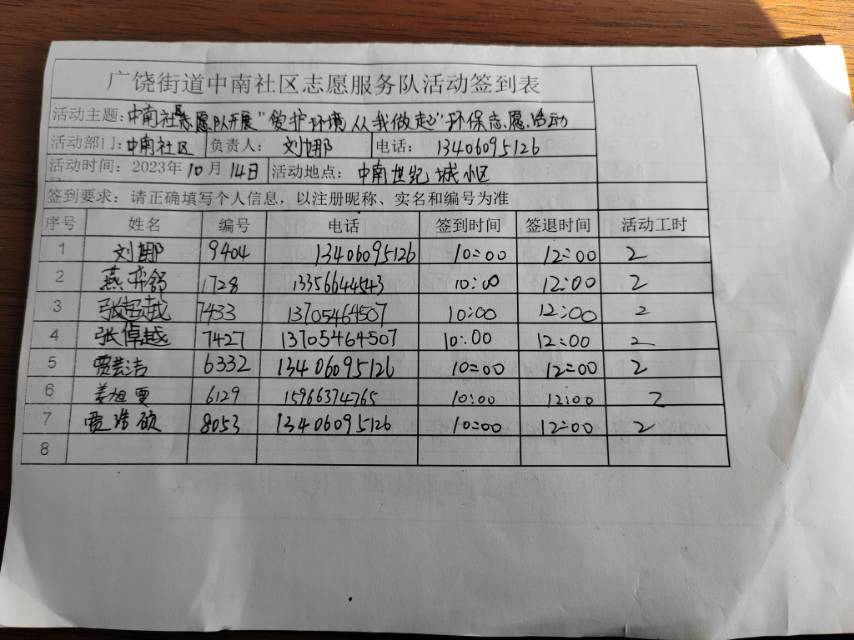 广饶街道中南社区志愿服务队活动签到表
活动主题：中南社区志愿队开展"爱护环境从我做起"环保志愿活动
活动部门：中南社区 负责人：刘娜 电话：13406095126
活动时间：2023年10月14日 活动地点：中南世纪城小区
签到要求：请正确填写个人信息，以注册昵称、实名和编号为准
序号 姓名 编号 电话 签到时间 签退时间 活动工时
1 刘娜 9404 13406095126 10:00 12:00 2
2 燕弈 1728 13356644543 10:00 12:00 2
3 张超越 7433 13705464507 10:00 12:00 2
4 张倬越 7427 13705464507 10:00 12:00 2
5 贾芸洁 6332 13406095126 10:00 12:00 2
6 姜旭雯 6129 15966374765 10:00 12:00 2
7 贾浩硕 8053 13406095126 10:00 12:00 2
8